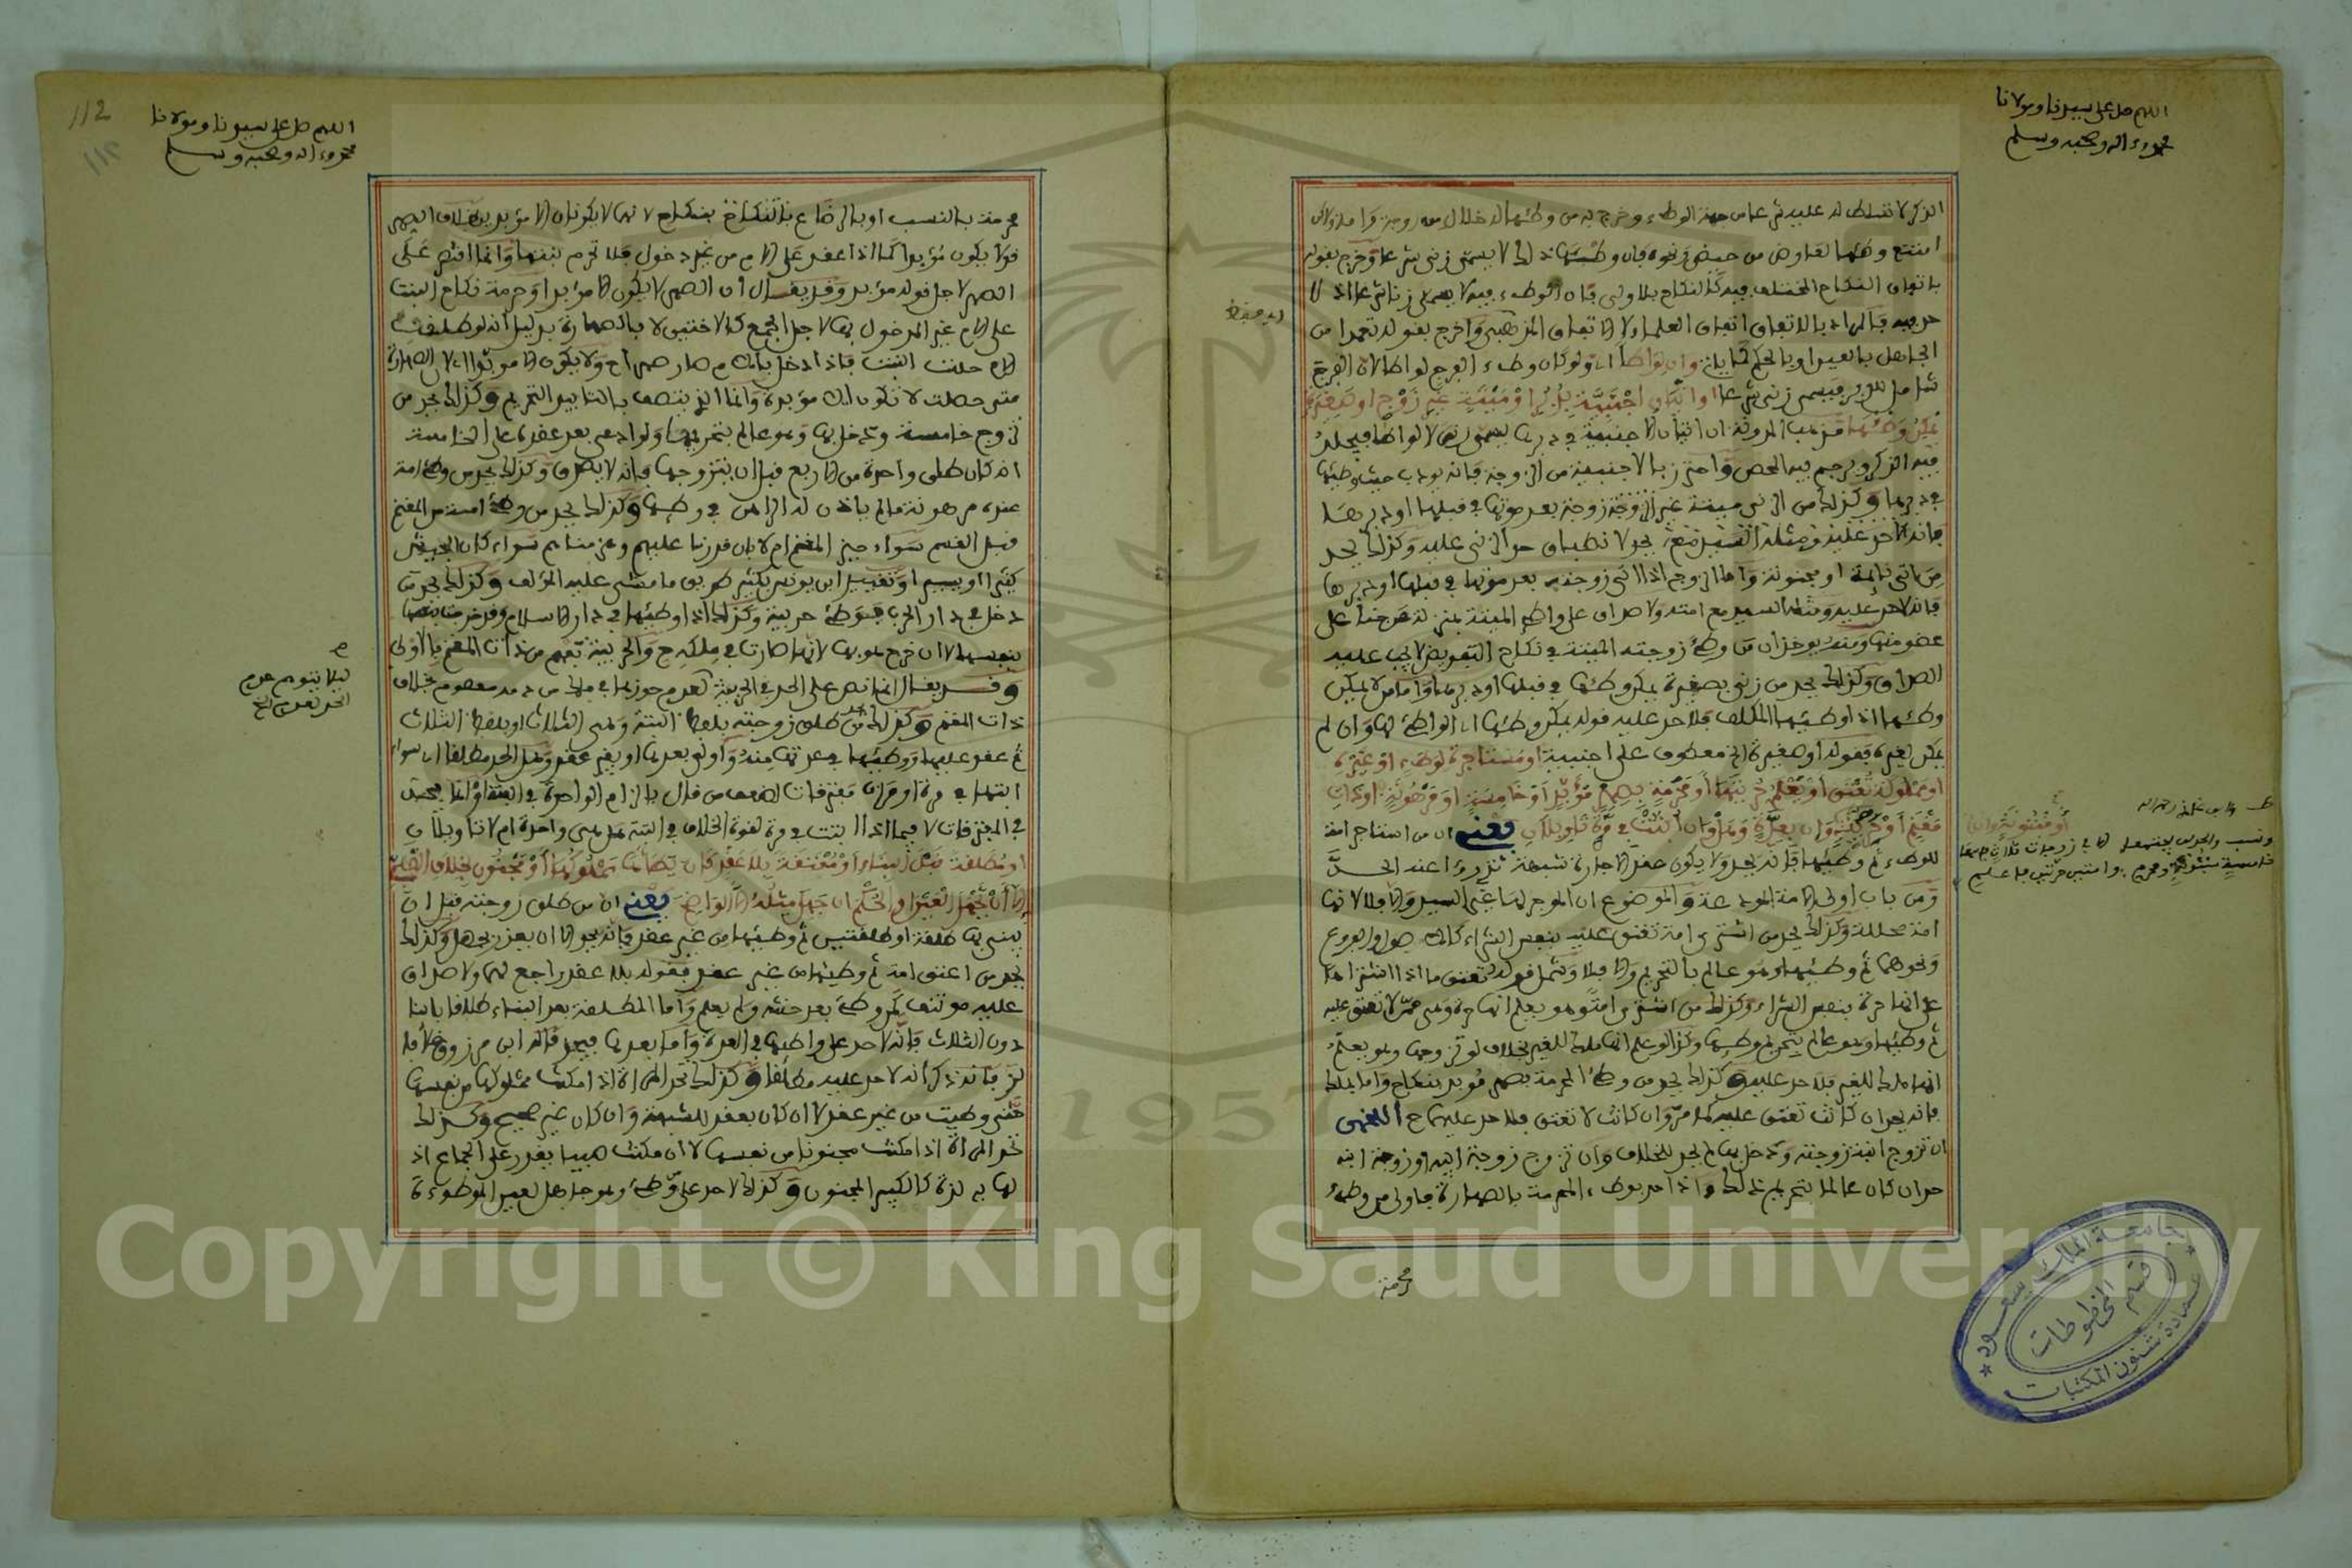 اللهم صل على سيدنا ومولانا
محمد وءاله وصحبه وسلم
الذكر لا تسلط له عليه شرعا من جهة الوطء وخرج به من وطئها له حلال من زوجة وامة ولاكن
امتنع وطئها لعارض من حيض ونحوه فان وطئها ذلك لا يسمى زنى شرعا وخرج بقوله
باتفاق النكاح المختلف فيه كالنكاح بلا ولي فان الوطء فيه لا يسمى زنا شرعا اذ لا
حد فيه فالمراد بالاتفاق اتفاق العلماء لا اتفاق المذهبين واخرج بقوله تعمدا من
الجاهل بالعين او بالحكم كما ياتي وان لواطا اي ولو كان وطء الفرج لواطا لان الفرج
شامل للدبر فيسمى زنى شرعا او اتيان اجنبية بدبر او ميتة غير زوج او صغيرة
يمكن وطئها مذهب المدونة ان اتيان الاجنبية في دبرها يسمى زنى لا لواطا فيجلد
فيه البكر ويرجم فيه المحصن واحترز بالاجنبية من الزوجة فانه يودب حيث وطئها
في دبرها وكذلك من اتى ميتة غير الزوجة بعد موتها في قبلها او دبرها
من اتى نائمة او مجنونة واما الزوج اذا اتى زوجته بعد موتها في قبلها او دبرها
فانه لا حد عليه ومثله السيد مع امته ولا صداق على واطئ الميتة بمنزلة من جنا على
عضو منها ومنه يوخذ ان من وطئ زوجته الميتة في نكاح التفويض لا يجب عليه
الصداق وكذلك يحد من زنى بصغيرة يمكن وطئها في قبلها او دبرها واما من لا يمكن
وطئها اذا وطئها المكلف فلا حد عليه قوله يمكن وطئها اي الواطئ لها وان لم
يمكن لغيره فقوله او صغيرة الخ معطوف على اجنبية او مستاجرة لوطء او غيره
او مملوكة تعتق او يعلم حريتها او محرمة بصهر مؤبد او خامسة او مرهونة او ذات
مغنم او حربية وان بعدة وهل وان ابتت في مرة تاويلان يعني ان من استاجر امة
للوطء ثم وطئها فانه يحد ولا يكون عقد الاجارة شبهة تدرءا عنه الحد
ومن باب اولى الامة المودعة والموضوع ان الموجر لها غير السيد والا فلا لانها
امة محللة وكذلك يحد من اشترى امة تعتق عليه بنفس الشراء كالاصول والفروع
ونحوهما ثم وطئها وهو عالم بالتحريم والا فلا وشمل قوله تعتق ما اذا اشتراها
على انها حرة بنفس الشراء وكذلك من اشترى امة وهو يعلم انها حرة وهي ممن لا تعتق عليه
ثم وطئها وهو عالم بتحريم وطئها وكذا لو علم انها ملك للغير بخلاف لو تزوجها وهو يعلم
انها ملك للغير فلا حد عليه وكذلك يحد من وطئ المحرمة بصهر مؤبد بنكاح واما بملك
فانه يحد ان كانت تعتق عليه كما مر وان كانت لا تعتق فلا حد عليهما ح اللخمي
ان تزوج ابنة زوجته وقد دخل بها لم يحد للخلاف وان تزوج زوجة ابيه او زوجة ابنه
حد ان كان عالما بتحريم ذلك واذا حد بوطء المحرمة بالصهارة فاولى من وطئ
محرمة
جامعة الملك سعود
عمادة شئون المكتبات
قسم المخطوطات
112
١١٢
اللهم صل على سيدنا ومولانا
محمد وءاله وصحبه وسلم
محرمة بالنسب او بالرضاع بنكاح لانها لا يكونان الا مؤبدين بخلاف الصهر
فقد لا يكون مؤبدا كما اذا عقد على الام من غير دخول فلا تحرم بنتها وانما اقتصر على
الصهر لاجل قوله مؤبد وقد يقال ان الصهر لا يكون الا مؤبدا وحرمة نكاح البنت
على الام غير المدخول بها لاجل الجمع كالاختين لا بالصهارة بدليل انه لو طلقت
الام حلت البنت فاذا دخل بالام صار صهرا ح ولا يكون الا مؤبدا اي لان الصهارة
متى حصلت لا تكون الا مؤبدة وانما الذي يتصف بالتابيد التحريم وكذلك يحد من
تزوج خامسة ودخل بها وهو عالم بتحريمها ولو ادعى بعد عقده على الخامسة
انه كان طلق واحدة من الاربع قبل ان يتزوجها فانه لا يصدق وكذلك يحد من وطئ امة
عنده مرهونة ما لم ياذن له الراهن في وطئها وكذلك يحد من وطئ امة من المغنم
قبل القسم سواء حيز المغنم ام لا بان قدرنا عليهم وعن منابهم سواء كان الجيش
كثيرا او يسيرا وتقييد ابن يونس بكثير طريق ما مشى عليه المؤلف وكذلك يحد من
دخل في دار الحرب فوطئ حربية وكذلك اذا وطئها في دار الاسلام وقد خرجت بنفسها
بنفسها لا ان خرج هو بها لانها صارت في ملكه ح والحربية تفهم من ذات المغنم بالاولى
وقد يقال انما نص على الحد في الحربية لعدم حوزها في ملك من دمه معصوم بخلاف
ذات المغنم وكذلك من طلق زوجته بلفظ البتة وهي الثلاث او بلفظ الثلاث
ثم عقد عليها ووطئها في عدتها منه واولى بعدها او بغير عقد وهل الحد مطلقا اي سواء
ابتها في مرة او مرات متفرقات لضعف من قال بالزام الواحدة في البتة او انما يحد
في المتفرقات لا فيما اذا ابتت في مرة لقوة الخلاف في البتة هل هي واحدة ام لا تاويلان
او مطلقة قبل البناء او معتقة بلا عقد كان يطاها مملوكها او مجنون بخلاف الصبي
الا ان يجهل العين او الحكم ان جهل مثله الا الواضح يعني ان من طلق زوجته قبل ان
يبني بها طلقة او طلقتين ثم وطئها من غير عقد فانه يحد الا ان يعذر بجهل وكذلك
يحد من اعتق امة ثم وطئها من غير عقد فقوله بلا عقد راجع لهما ولا صداق
عليه مؤتنف كمن وطئ بعد حنثه ولم يعلم واما المطلقة بعد البناء طلاقا بائنا
دون الثلاث فانه لا حد على واطئها في العدة واما بعدها فيحد قاله ابن مرزوق
فانه ذكر انه لا حد عليه مطلقا وكذلك تحد المراة اذا امكنت مملوكها من نفسها
حتى وطئت من غير عقد لا ان كان بعقد للشبهة وان كان غير صحيح وكذلك
تحد المراة اذا مكنت مجنونا من نفسها لا ان مكنت صبيا يقدر على الجماع اذ
لها به لذة كالكبير المجنون وكذلك لا حد على من وطئ وهو جاهل لعين الموطوءة
ليلا يتوهم عدم
الحد لعدم الخ
Copyright © King Saud University
1957